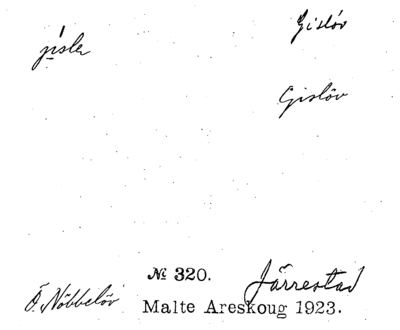 Gislóv
jisle
Gislöv
№ 320.
Järrestad
Ö. Nöbbelöv
Malte Areskoug 1923.